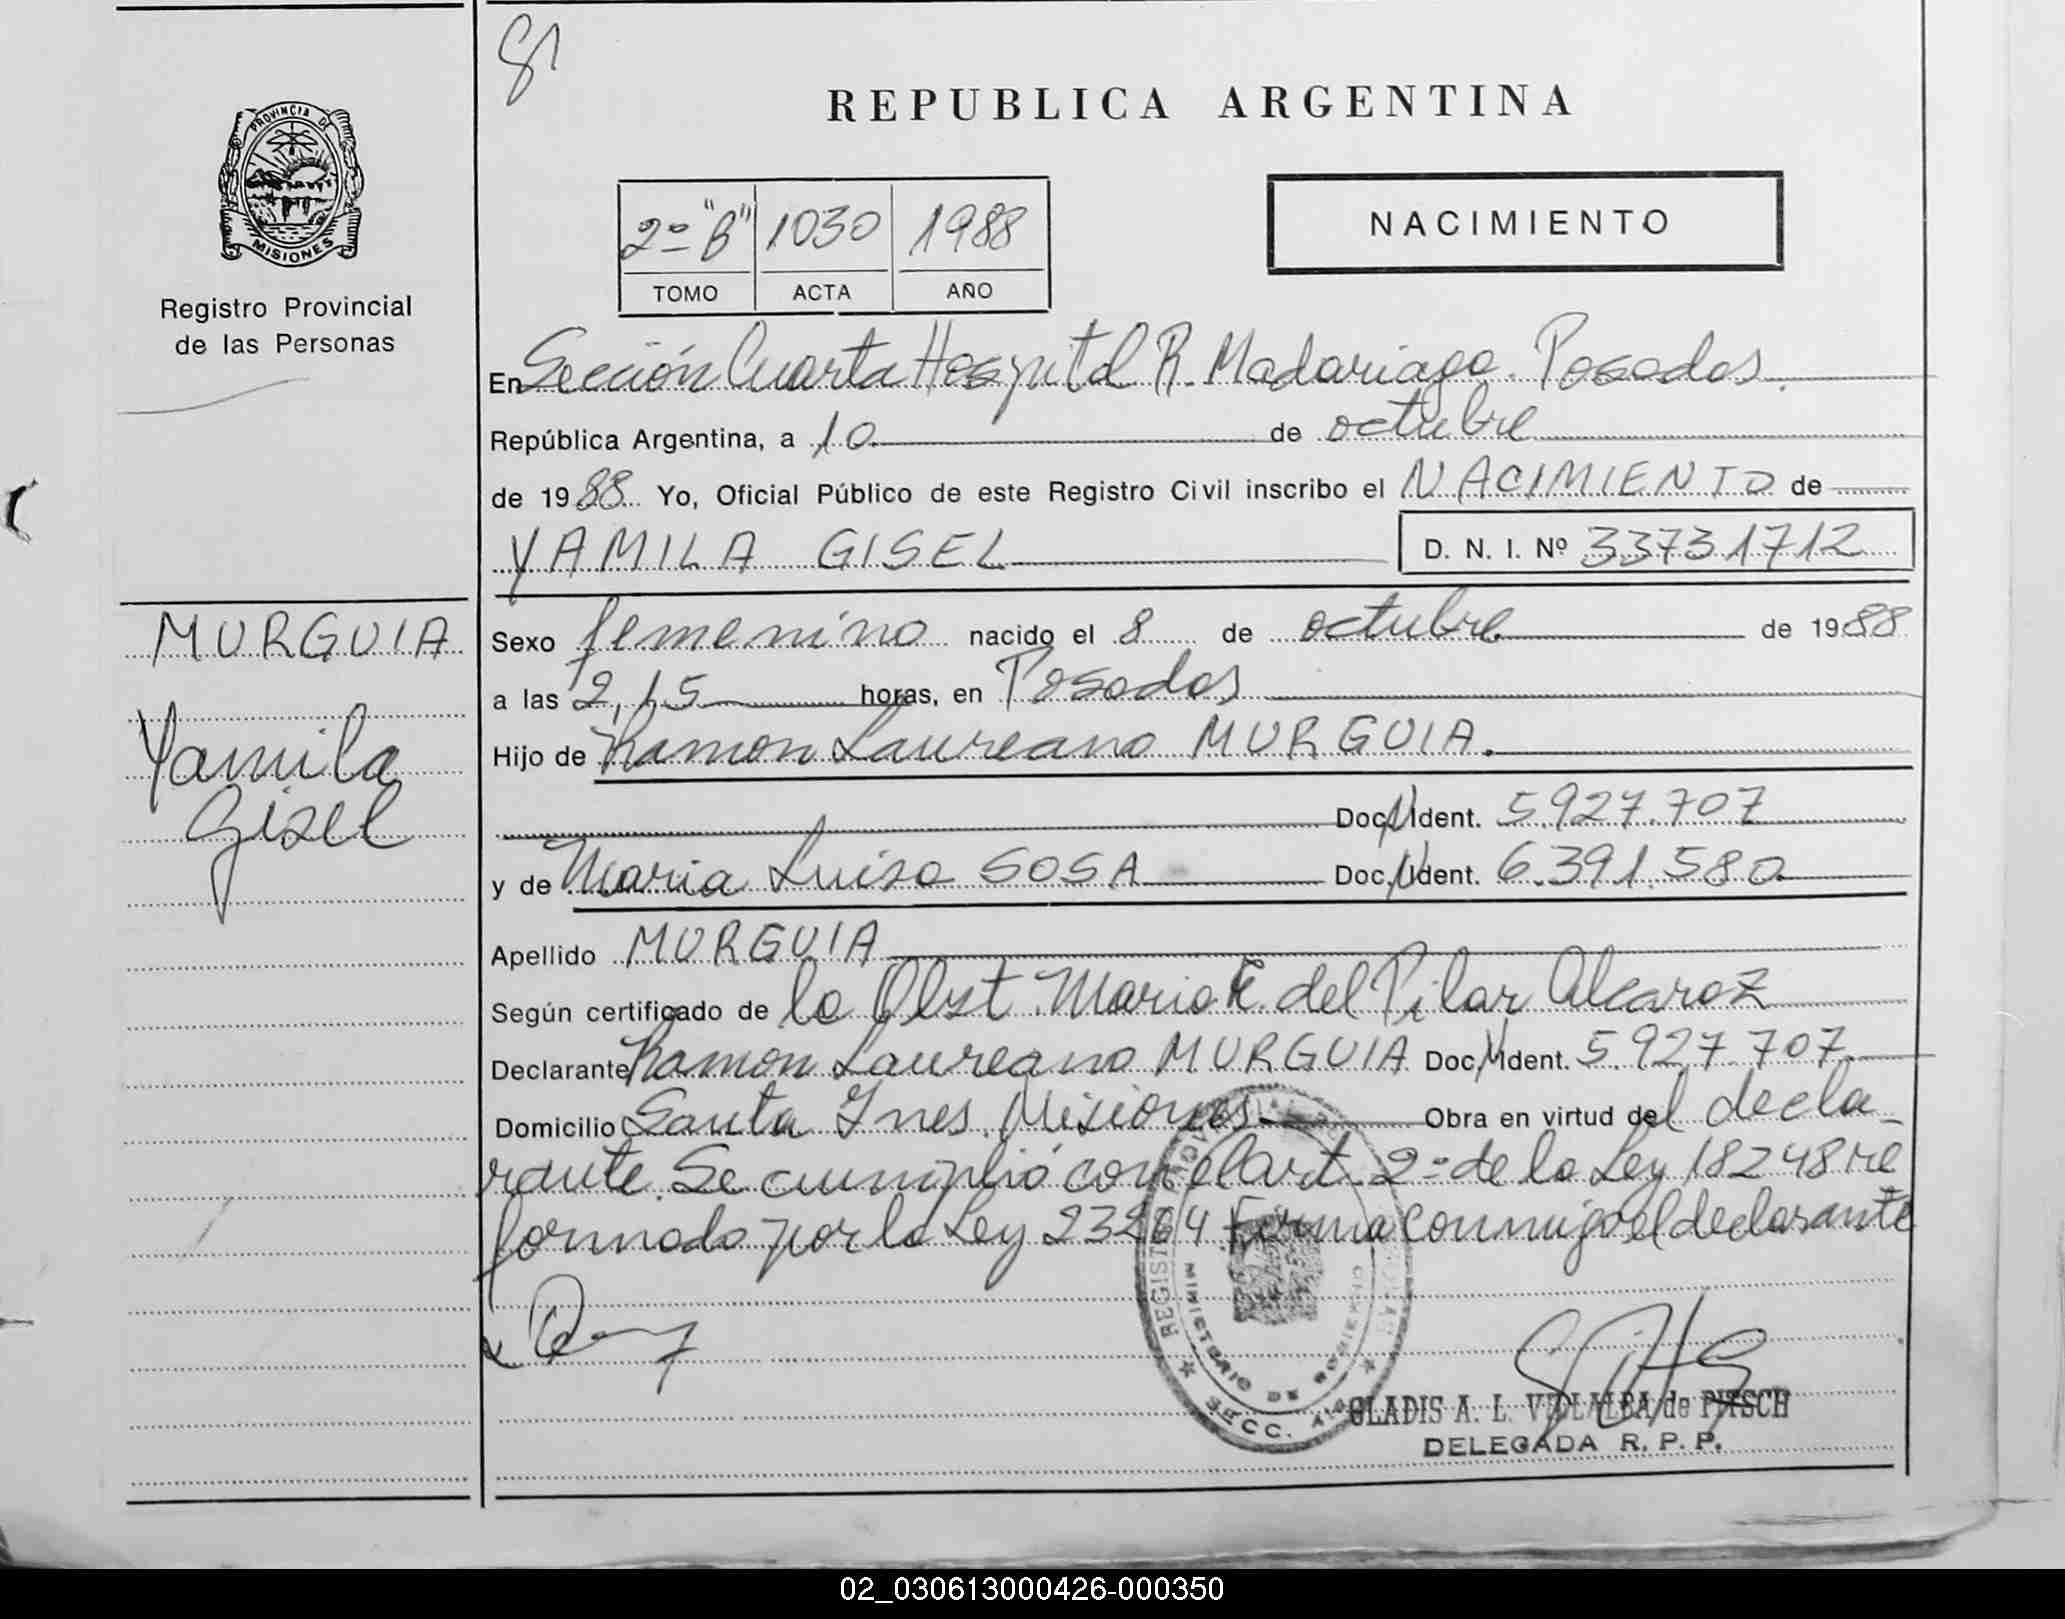 81
REPUBLICA ARGENTINA
PROVINCIA DE
MISIONES
Registro Provincial
de las Personas
2º "B" 1030 1988
TOMO ACTA AÑO
NACIMIENTO
En Sección Cuarta Hospital R. Madariaga. Posadas.
República Argentina, a 10 de octubre
de 1988 Yo, Oficial Público de este Registro Civil inscribo el NACIMIENTO de
YAMILA GISEL D. N. I. Nº 33731712
MURGUIA
Yamila
Gisel
Sexo femenino nacido el 8 de octubre de 1988
a las 12,15 horas, en Posadas
Hijo de Ramon Laureano MURGUIA.
Doc. N Ident. 5.927.707
y de Maria Luisa SOSA Doc. N Ident. 6.391.580
Apellido MURGUIA
Según certificado de la Obst. Maria E. del Pilar Alcaroz
Declarante Ramon Laureano MURGUIA Doc. N Ident. 5.927.707
Domicilio Santa Ines. Misiones Obra en virtud del decla
rante. Se cumplió con el art. 2º de la Ley 18248 re
formado por la Ley 23264 Firma conmigo el declarante
REGISTRO PROVINCIAL
MINISTERIO DE GOBIERNO
SECC. 4ta
GLADIS A. L. VILLALBA de PITSCH
DELEGADA R. P. P.
02_030613000426-000350